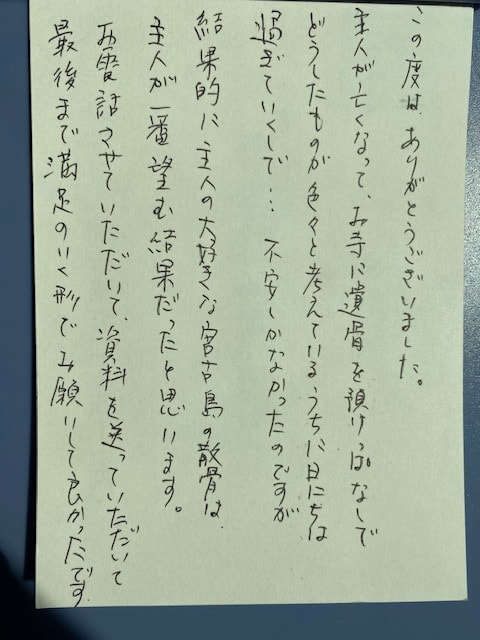 この度は、ありがとうございました。
主人が亡くなって、お寺に遺骨を預けっぱなしで
どうしたものか色々と考えているうちに日にちは
過ぎていくしで… 不安しかなかったのですが
結果的に主人の大好きな宮古島の散骨は、
主人が一番望む結果だったと思います。
お電話させていただいて、資料を送っていただいて
最後まで満足のいく形でお願いして良かったです。